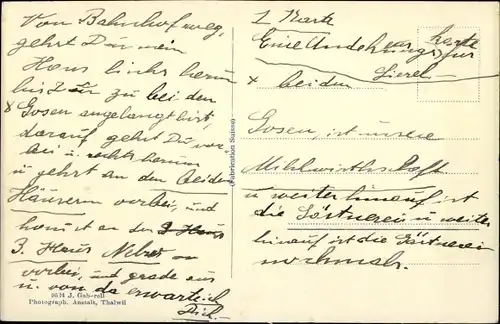 Von Bahnhof weg
gehst Du
Haus links herum
bis Du zu bei den
× Gosen angelangt bist,
darauf gehst Du vor
bei u. rechts herum
u. gehst an den beiden
Häusern vorbei, und
kommst an das 3. Haus
3. Haus
vorbei, und grade aus
u. von da erwarte ich
Dich.
9534 J. Gaberell
Photograph. Anstalt, Thalwil
(Fabrication Suisse)
1 Karte
Karte
Eine für
× beiden
Gosen, ist unsere
Mihlwirthschaft
u weiter hinauf ist
die u weiter
hinauf ist die Gärtnerein
nochmals.